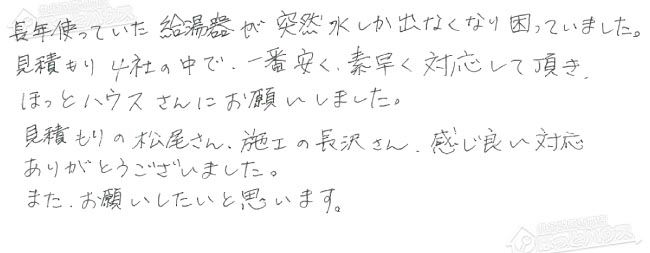 長年使っていた給湯器が突然水しか出なくなり困っていました。
見積もり4社の中で、一番安く、素早く対応して頂き、
ほっとハウスさんにお願いしました。
見積もりの松尾さん、施工の長沢さん、感じ良い対応
ありがとうございました。
また、お願いしたいと思います。